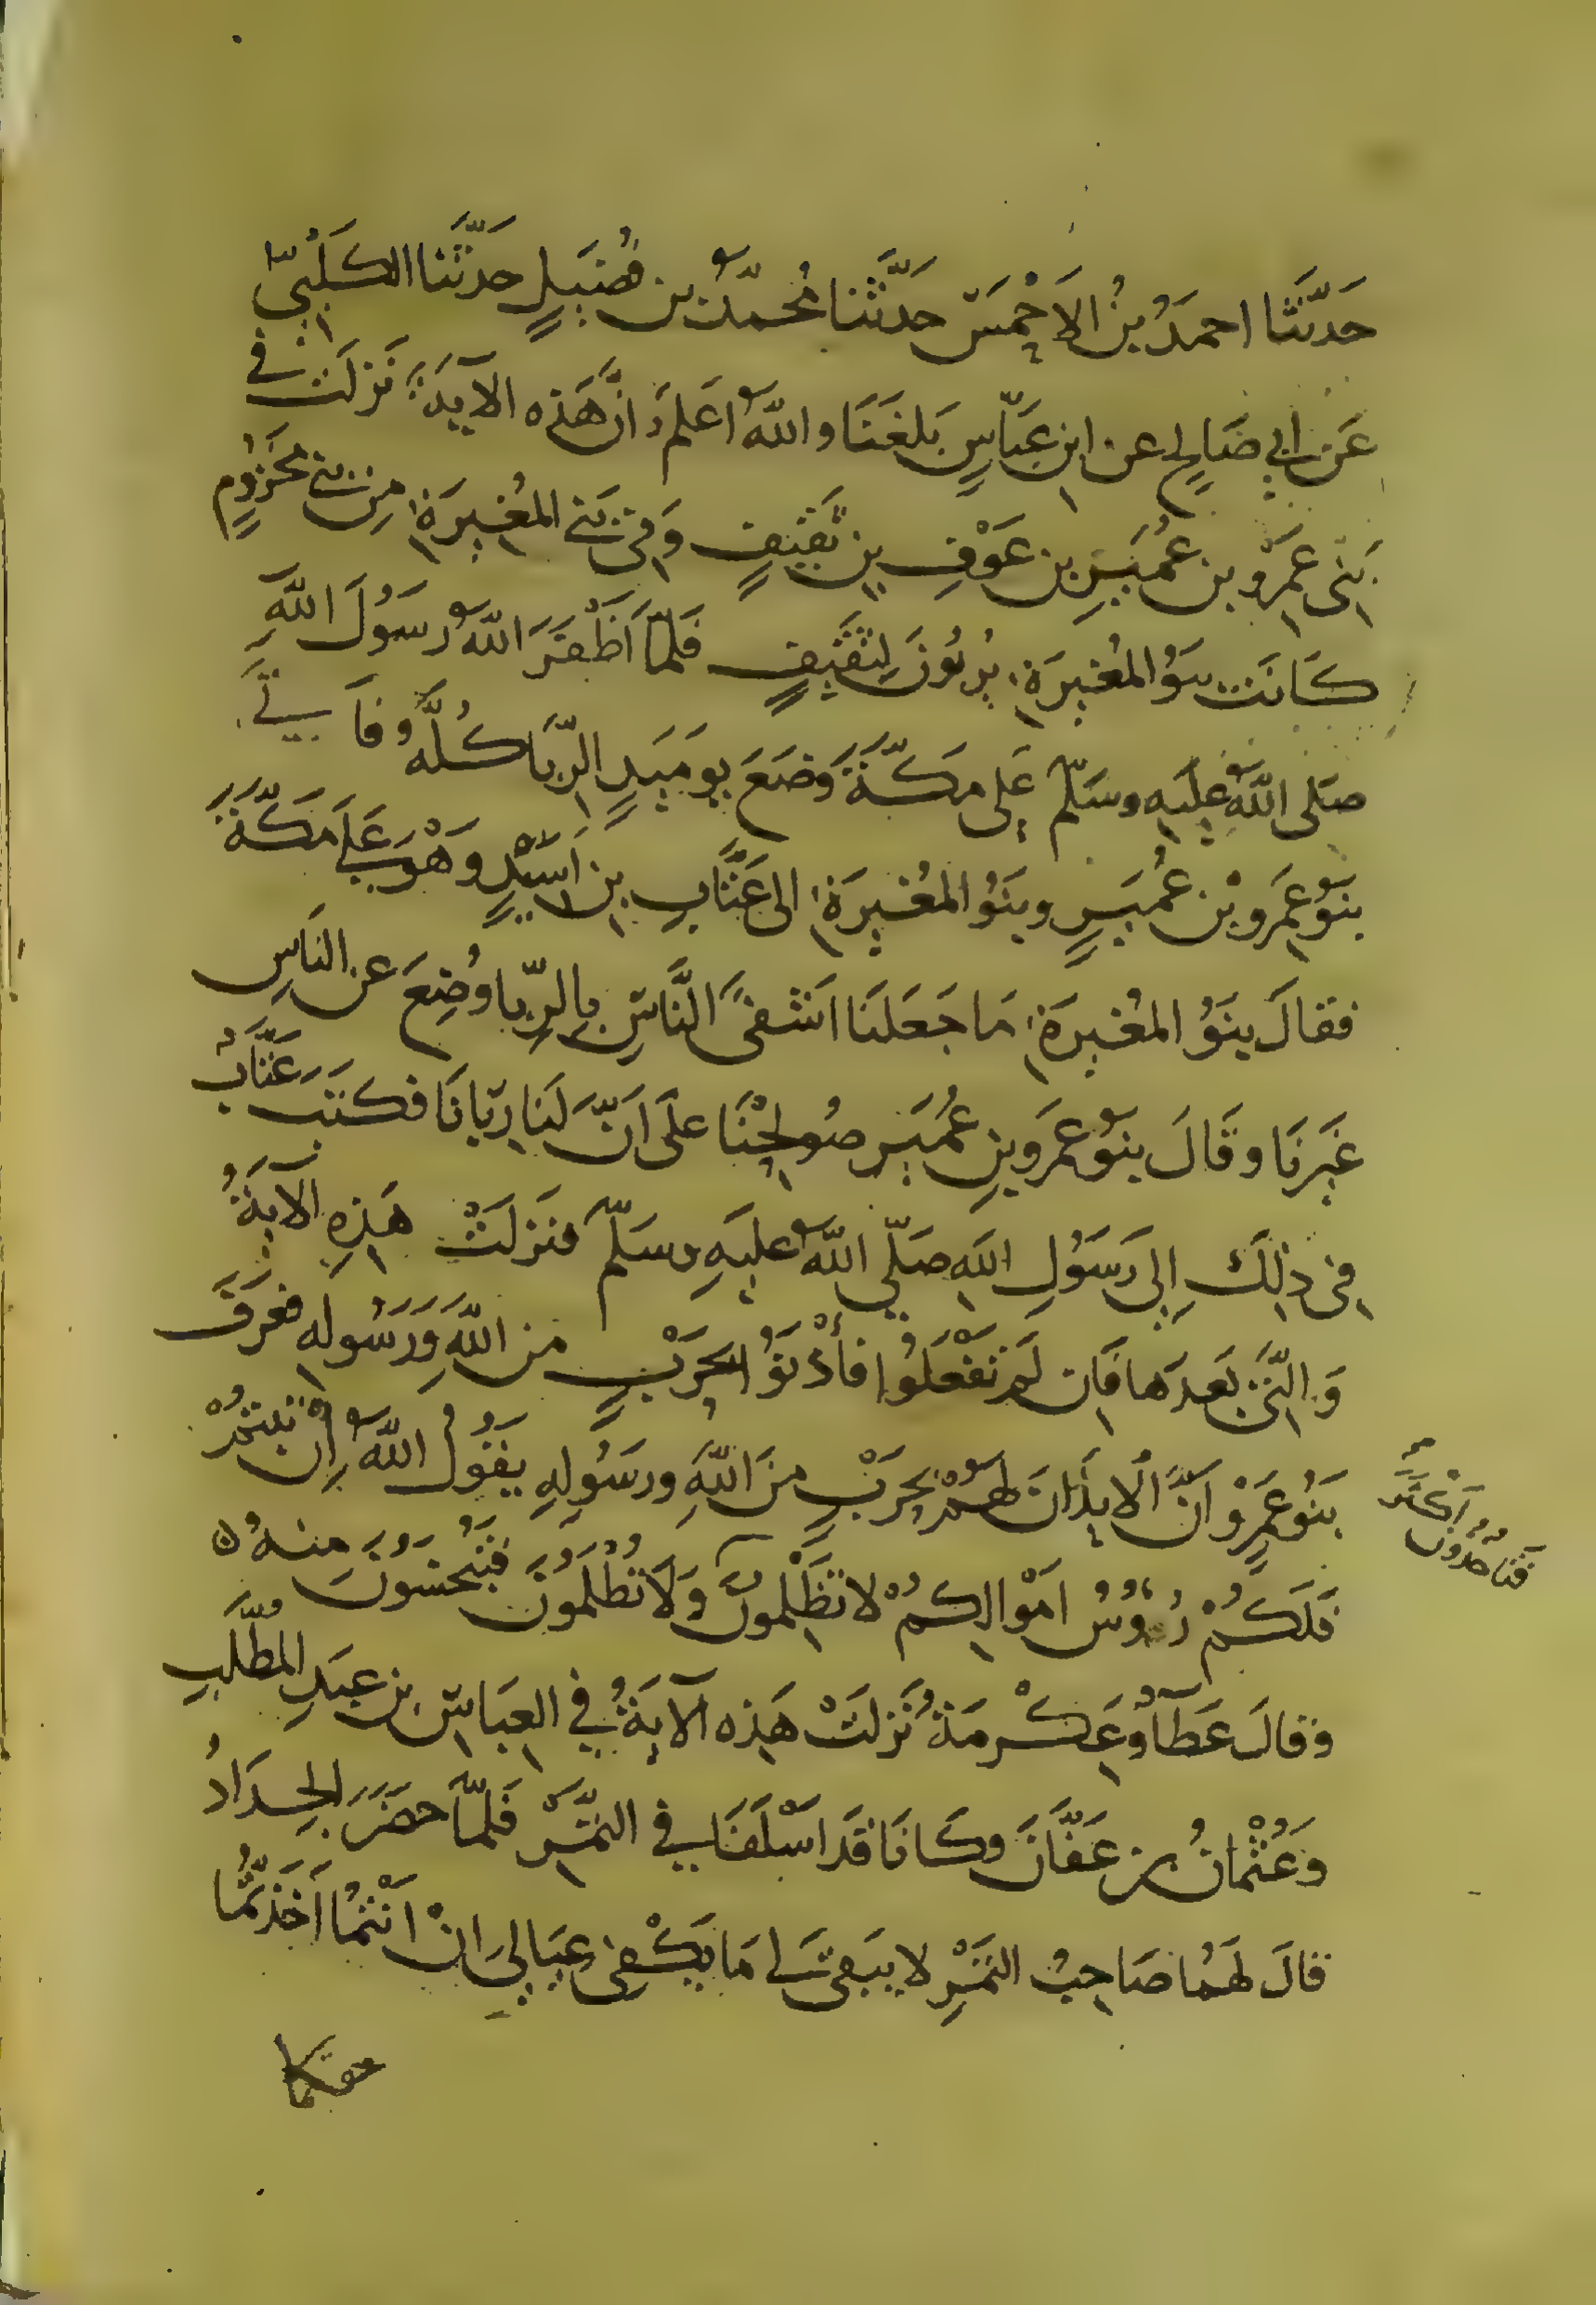 حَدَّثَنَا احمَدُ بنُ الاَحْمَسِ حَدَّثَنا مُحَمَّدُ بن فُضَيلٍ حَدثَنا الكَلْبِيّ
عَن ابي صَالحٍ عن ابنِ عَبّاسٍ بَلغَنَا واللهُ اَعلَمُ انَّ هَذه الآيَةَ نَزلَت في
بَنى عَمْرو بن عُمَيرِ بن عَوْفِ بنِ ثَقِيفٍ وَفى بَنى المُغيرَةِ مِن بنى مَخزُومٍ
كَانَت بنَوُ المُغيرَةِ يُربُونَ لِثَقِيفٍ فَلمّا اَظْفَرَ اللهُ رسَوُلَ اللهِ
صَلى اللهُ عليَهِ وسَلّم عَلى مَكّةَ وَضَعَ يومَيِذٍ الرِّبَا كُلَّهُ فاَتي
بنَوُ عَمَرو بْن عُمَيرٍ وبنَوُ المُغيرَةِ الى عَتَّابِ بنِ اَسَيْدٍ وَهْوَ عَلَى مَكّةَ
فقالَ بنَوُ المُغيرَةِ مَا جَعَلنَا اَشْقىَ النَّاسِ بالرِّبا وُضِعَ عن النَاسِ
غَيرنَا وقَالَ بنَوُ عَمَرو بنِ عُمَيرٍ صُولِحْنَا علَى اَنَّ لَنَا رِبَانَا فكَتَب عَتَّابُ
فى ذلِكَ اِلى رَسَوُلِ اللهِ صَلّى اللهُ عليَهِ وسَلّم فنَزلَتْ هَذِهِ الآيَةُ
وَالتّى بَعدَها فَاِن لَم تَفْعَلُوا فأْذَنوُا بحَرْبٍ من اللهِ وَرَسُولِهِ فعَرَفَ
بَنُو عَمرٍو اَنّ الايذَانَ لهَمُ بحَربٍ منَ اللهِ ورسَوُلِهِ يقَوُلُ اللهُ اِن تُبتُمْ
فَتاخذون اَكثَر
فَلَكُمْ رُؤُوسُ امَوْالِكُمْ لا تَظْلِمونَ وَلَا تُظْلَمُونَ فتُبْخَسُونَ مِنهُ ه
وَقالَ عَطَآ وُعِكْرمَةُ نَزلَتْ هَذِه الآيَةُ في العَبَاسِ بن عَبدِ المُطَّلِبِ
وَعُثْمانُ بن عَفَّانَ وكَانَا قَد اَسْلَفَا في التمَّرْ فَلمّا حضَرَ الجِدَادُ
قالَ لهَمُا صَاحِبُ التمَرْ لا يبَقى لى مَا يَكْفى عِيَالي اِنْ اَنْتمُا اَخَذتُمُا
حقكما